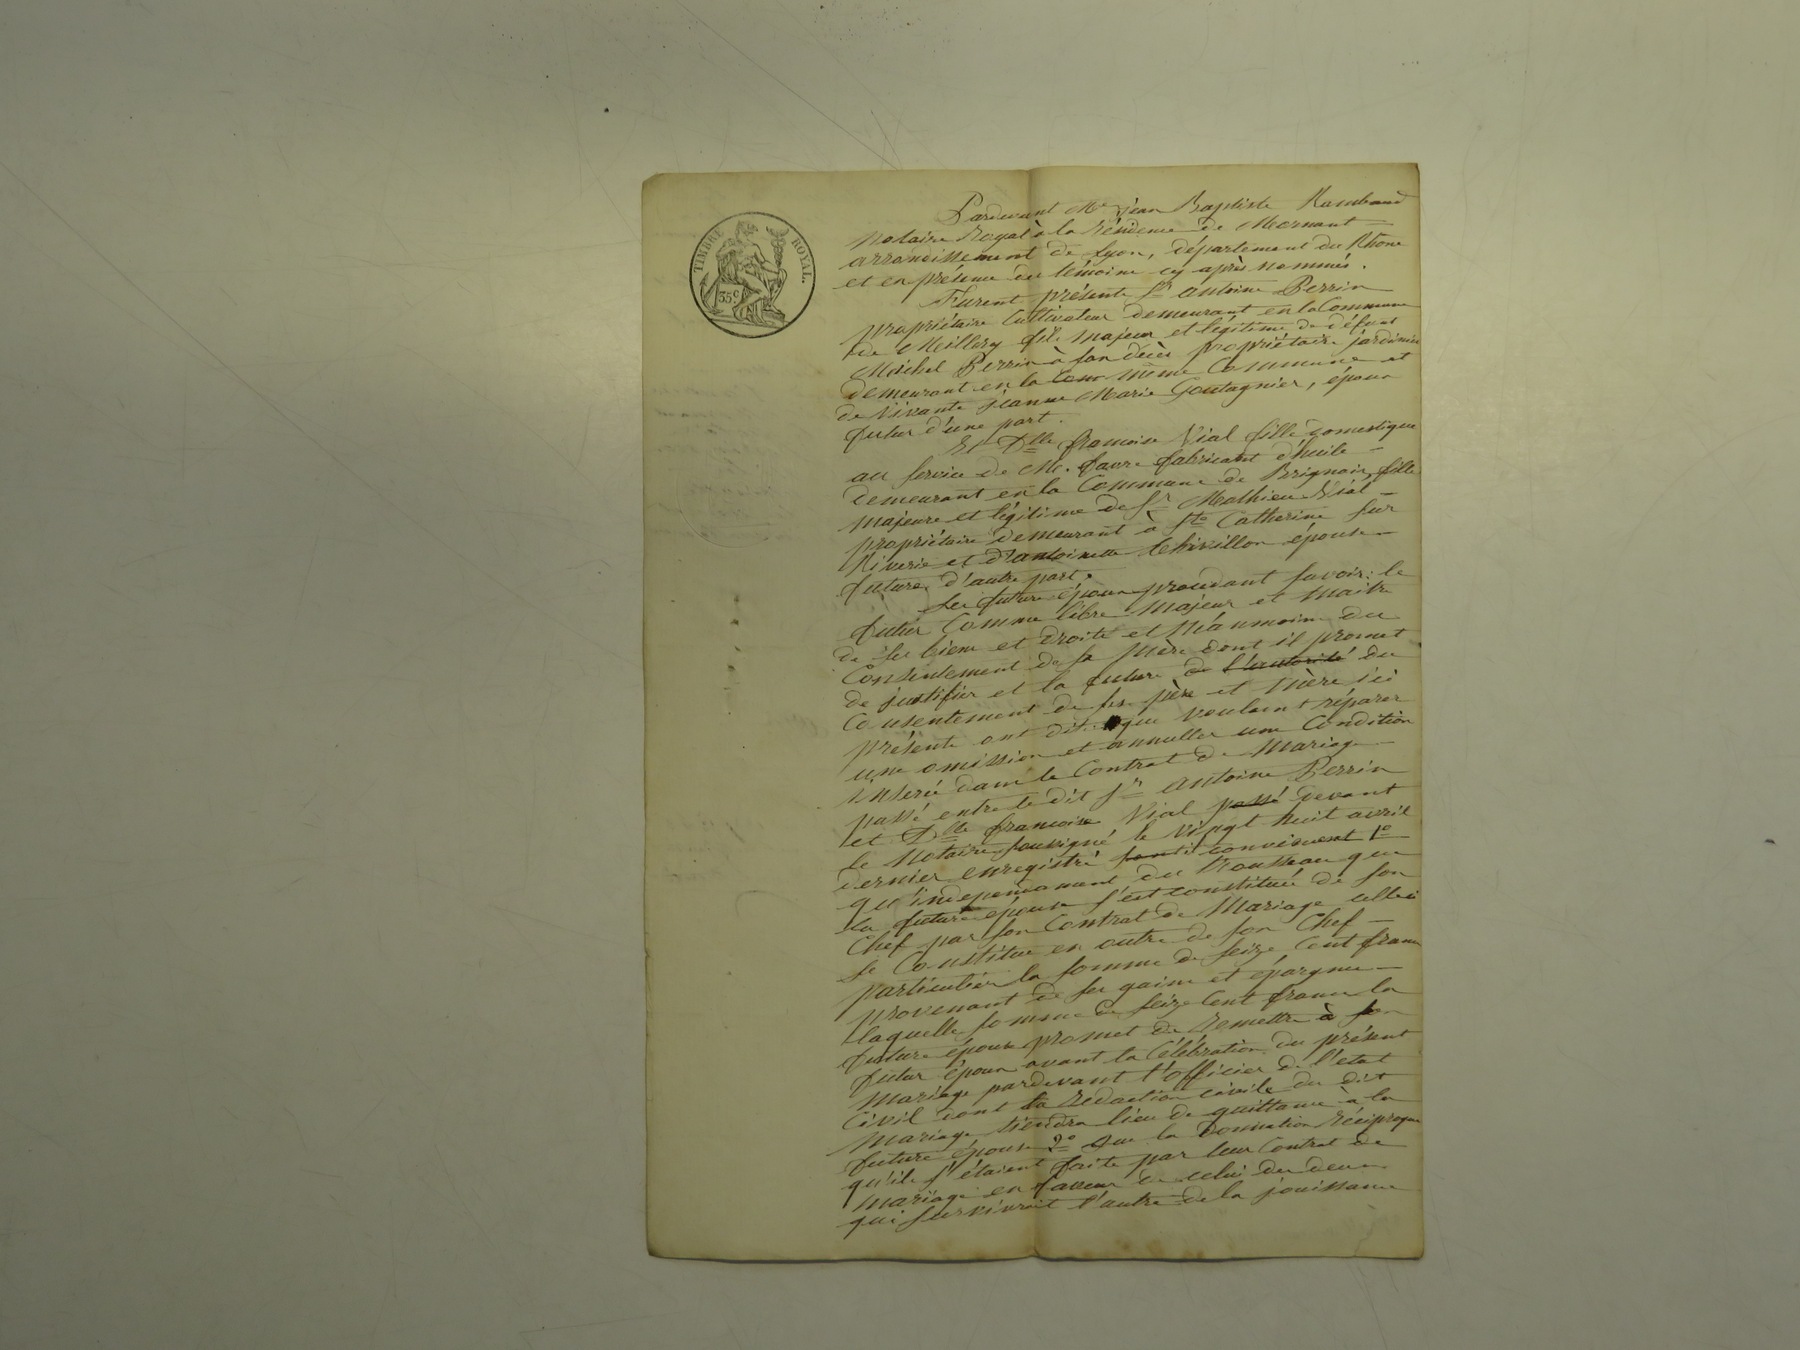 TIMBRE ROYAL.
35 c
Pardevant Me jean Baptiste Rambaud
notaire Royal à la résidence de Mornant
arrondissement de Lyon, département du Rhône
et en présence des témoins cy après nommés.
Furent présents Sr antoine Perrin
propriétaire Cultivateur demeurant en la Commune
de Millery fils majeur et légitime de défunt
Michel Perrin à son décès propriétaire jardinier
demeurant en la même Commune et
de vivante jeanne Marie Goutagnier, époux
futur d'une part.
Et Dlle francoise Vial fille domestique
au service de M. favre fabricant d'huile
demeurant en la Commune de Brignais, fille
majeure et légitime de Sr Mathieu Vial
propriétaire demeurant à Ste Catherine sur
Riverie et d'antoinette Chivillon épouse
future, d'autre part.
Les futurs époux procédant savoir: le
futur Comme libre majeur et maitre
de ses biens et droits et néanmoins du
Consentement de sa mère dont il promet
de justifier et la future de l'autorité du
Consentement de ses père et mère ici
présents ont dit que voulant réparer
une omission et annuller une Condition
inserée dans le Contrat de mariage
passé entre le dit Sr antoine Perrin
et Dlle francoise Vial passé devant
le Notaire soussigné le vingt huit avril
dernier enregistré conviennent 1o
qu'independament du trousseau que
la future épouse s'est constituée de son
Chef par son Contrat de Mariage celle ci
se Constitue en outre de son Chef
particulier la somme de seize Cent francs
provenant de ses gains et épargnes
laquelle somme de seize Cent francs la
future épouse promet de remettre à son
futur époux avant la Célébration du présent
mariage pardevant l'officier de l'etat
Civil dont la rédaction civile du dit
mariage tiendra lieu de quittance à la
future épouse 2o que la donnation réciproque
qu'ils s'étaient faite par leur Contrat de
mariage en faveur de celui des deux
qui survivroit l'autre de la jouissance